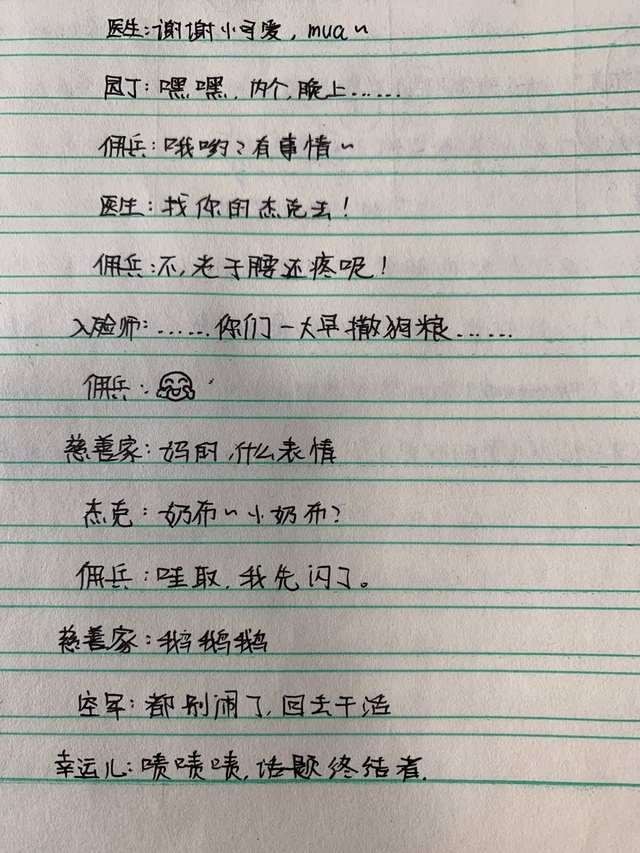 医生:谢谢小可爱,mua~
园丁:嘿嘿,内个,晚上……
佣兵:哦哟?有事情~
医生:找你的杰克去!
佣兵:不,老子腰还疼呢!
入殓师:……你们一大早撒狗粮……
佣兵:
慈善家:妈的,什么表情
杰克:奶布~小奶布?
佣兵:哇取,我先闪了。
慈善家:鹅鹅鹅
空军:都别闹了,回去干活
幸运儿:啧啧啧,话题终结者.